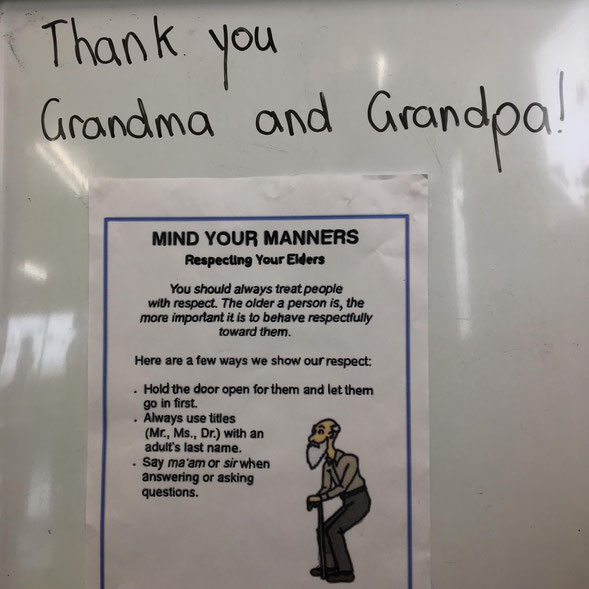 Thank you
Grandma and Grandpa!
MIND YOUR MANNERS
Respecting Your Elders
You should always treat people
with respect. The older a person is, the
more important it is to behave respectfully
toward them.
Here are a few ways we show our respect:
. Hold the door open for them and let them
go in first.
. Always use titles
(Mr., Ms., Dr.) with an
adult's last name.
. Say ma'am or sir when
answering or asking
questions.